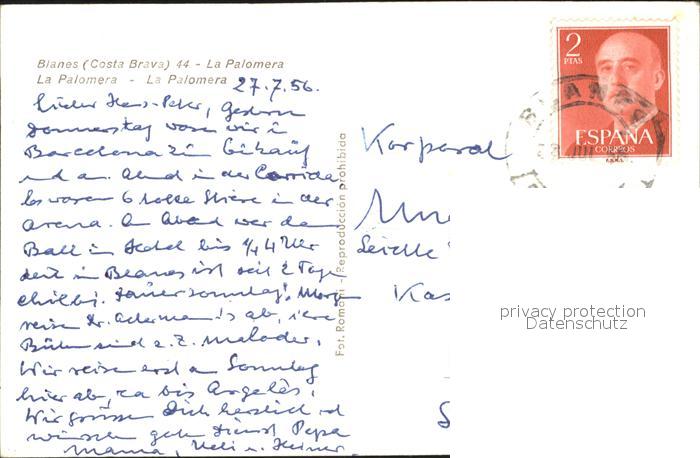 Blanes (Costa Brava) 44 - La Palomera
La Palomera - La Palomera
27.7.56.
Lieber Hans-Peter, Gestern
Donnerstag waren wir in
Barcelona zum Einkauf
und am Abend in der Corrida
Es waren 6 tolle Stiere in der
Arena. Am Abend war dann
Ball im Hotel bis 1/4 4 Uhr
in Blanes ist seit 2 Tagen
chilbi. Morgen
reisen ab, ihre
sind z. Z. malades.
Wir reisen erst am Sonntag
hier ab, ca bis Argelès.
Wir grüssen Dich herzlich und
wünschen guten Dienst Papa
Mama, Ueli u. Heiner.
Fot. Romani - Reproducción prohibida
Korporal
Kas
2
PTAS
ESPAÑA
CORREOS
BLANES
privacy protection
Datenschutz